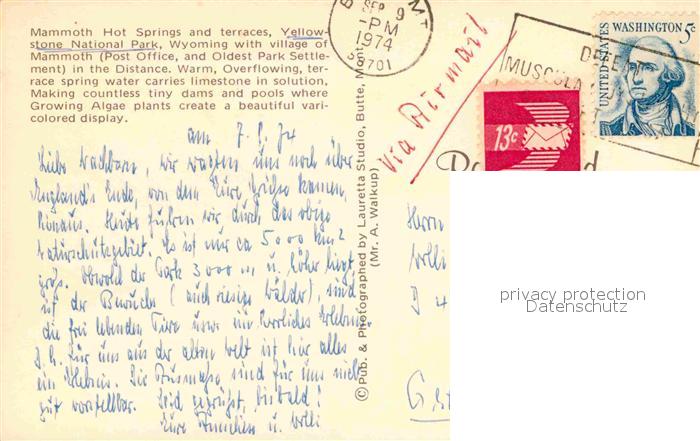 Mammoth Hot Springs and terraces, Yellow-
stone National Park, Wyoming with village of
Mammoth (Post Office, and Oldest Park Settle-
ment) in the Distance. Warm, Overflowing, ter-
race spring water carries limestone in solution,
Making countless tiny dams and pools where
Growing Algae plants create a beautiful vari-
colored display.
am 7. 9. 74
Liebe Nachbarn, wir waren uns noch über
England's Ende, von dem Eure Grüße kamen,
hinaus. Heute fuhren wir durch das obige
Naturschutzgebiet. Es ist nur ca 5000 km²
groß. Obwohl der Park 3000 m u. höher liegt
ist der Bewuchs (auch riesige Wälder), sind
die frei lebenden Tiere usw ein herrliches Erlebnis.
D.h. für uns aus der alten Welt ist hier alles
ein Erlebnis. Die Ausmaße sind für uns nicht
gut vorstellbar. Seid gegrüßt, bis bald!
Eure Annchen u. Willi
©Pub. & Photographed by Lauretta Studio, Butte, Mont.
(Mr. A. Walkup)
MT
SEP 9
-PM
1974
59701
Via Airmail
13c
UNITED STATES
WASHINGTON 5c
MUSCULAR
Herrn
Willi
D 4
privacy protection
Datenschutz